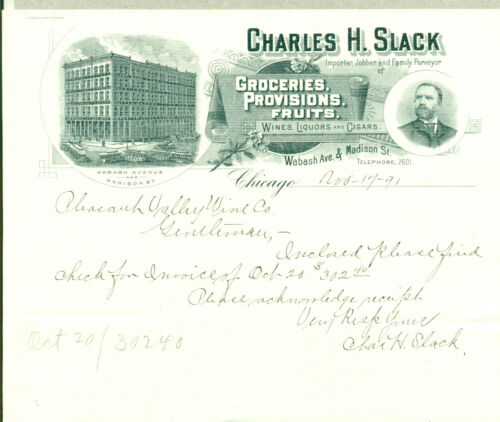 CHARLES H. SLACK
Importer, Jobber and Family Purveyor
of
GROCERIES,
PROVISIONS,
FRUITS.
WINES LIQUORS AND CIGARS.
Wabash Ave. & Madison St.
TELEPHONE, 2601.
WABASH AVENUE
AND
MADISON ST.
Chicago Nov-14-91
Pleasant Valley Wine Co.
Gentlemen,-
Inclosed please find
check for Invoice of Oct 20 $302 40
Please acknowledge receipt
Very Resp Yours
Chas H. Slack.
Oct 20/30240